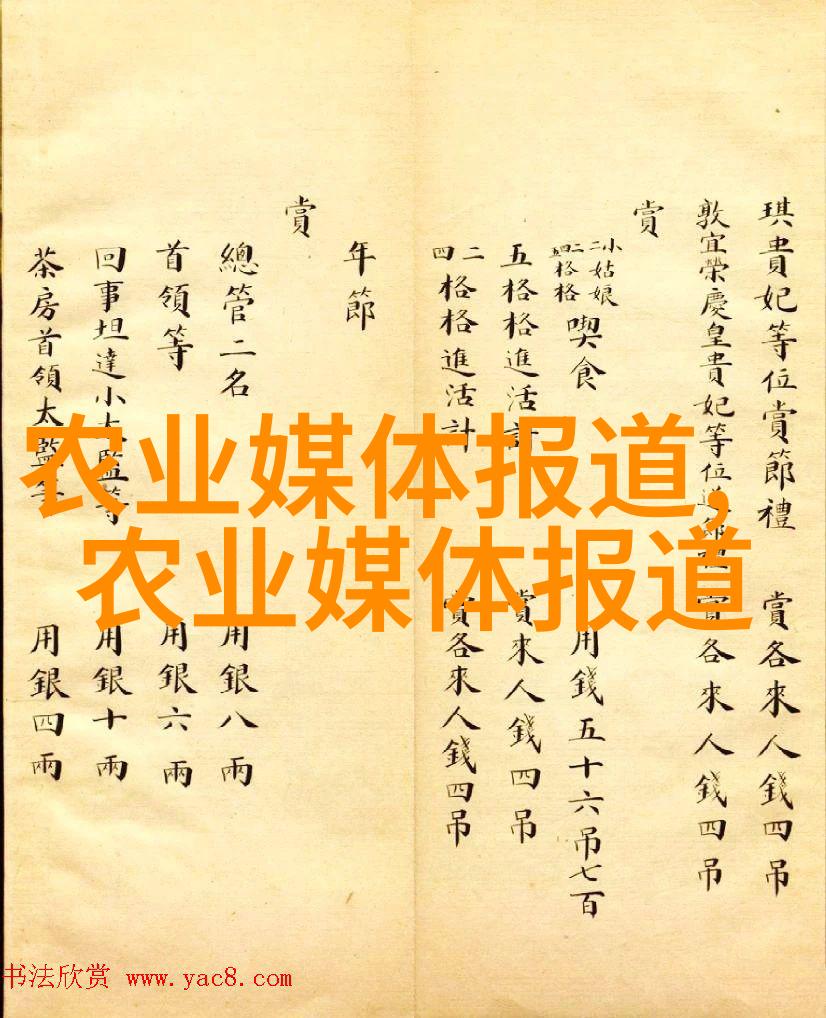 琪貴妃等位賞節禮 賞各來人錢四吊
敦宜榮慶皇貴妃等位 節禮 賞各來人錢四吊
賞
二小姑娘 格格 喫食 用錢五十六吊七百
五格格進活計 賞來人錢四吊
二四格格進活計 賞各來人錢四吊
年節
賞
總管二名 用銀八兩
首領等 用銀六兩
回事坦達小太監等 用銀十兩
茶房首領太監等 用銀四兩
农业媒体报道,
农业媒体报道
书法欣赏 www.yac8.com